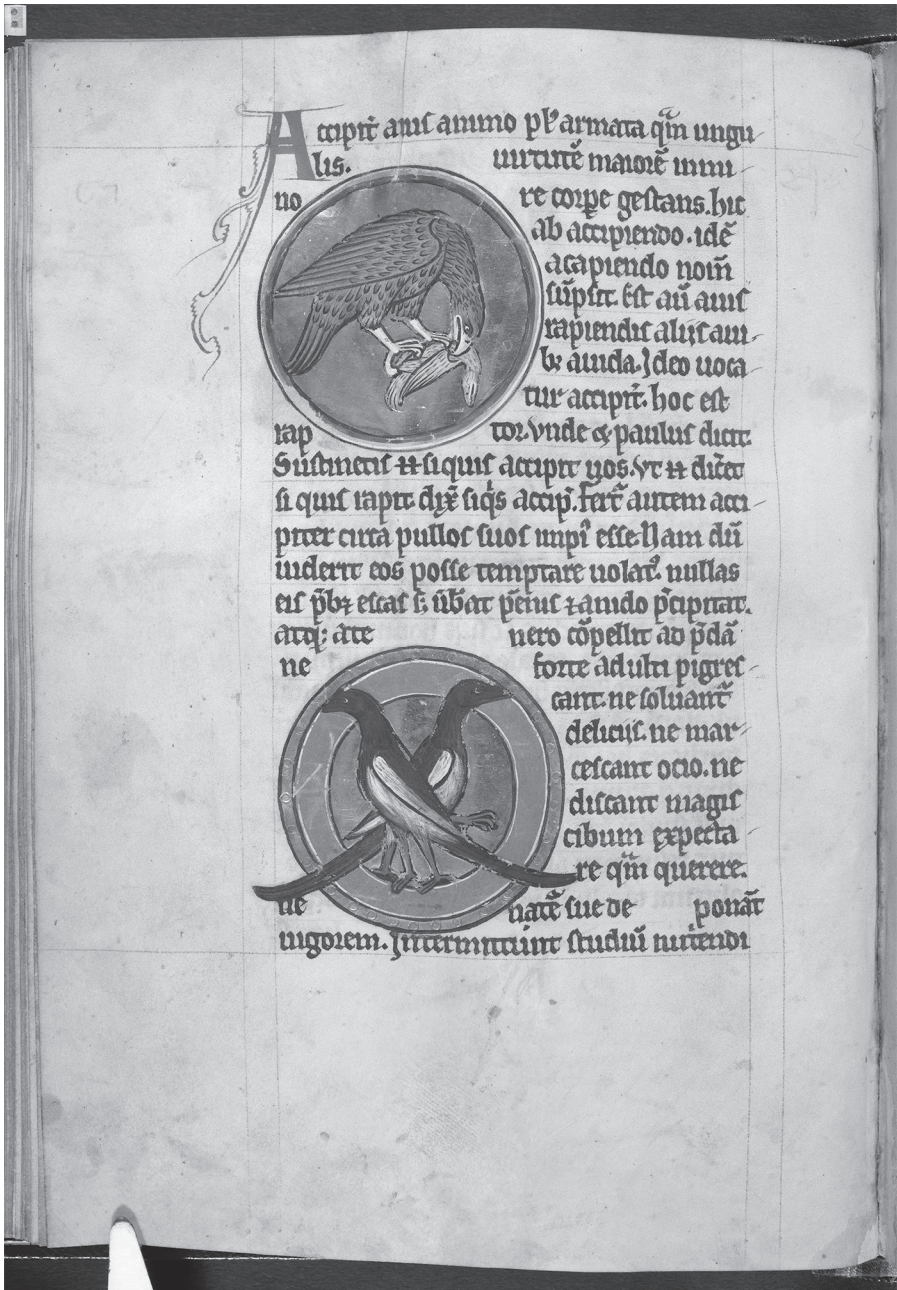 Accipit̃ auis animo pl' armata q̃m ungu
lis. uirtutẽ maiorẽ mini
no re corꝑe gestans. hic
ab accipiendo. idẽ
a capiendo nom̃
sũpsit. Est aũ auis
rapiendis aliis aui
bꝫ auida. Ideo uoca
tur accipit̃. hoc est
rap tor. Vnde & paulus dicit.
Sustinetis si quis accipit uos. Vt dic̃et
si quis rapit. dix̃ siq̃s accip̃. fert̃ autem acci
piter circa pullos suos impĩ esse. Nam dũ
uiderit eos posse temptare uolat᷒. nullas
eis p̃bꝫ escas
atqꝫ ate nero cõpellit ad p̃dã
ne forte adulti pigres
cant. ne soluant̃
deliciis. ne mar
cescant ocio. ne
discant magis
cibum expecta
re q̃m querere.
ne natẽ sue de ponãt
uigorem. Intermittunt studiũ nut̾endi